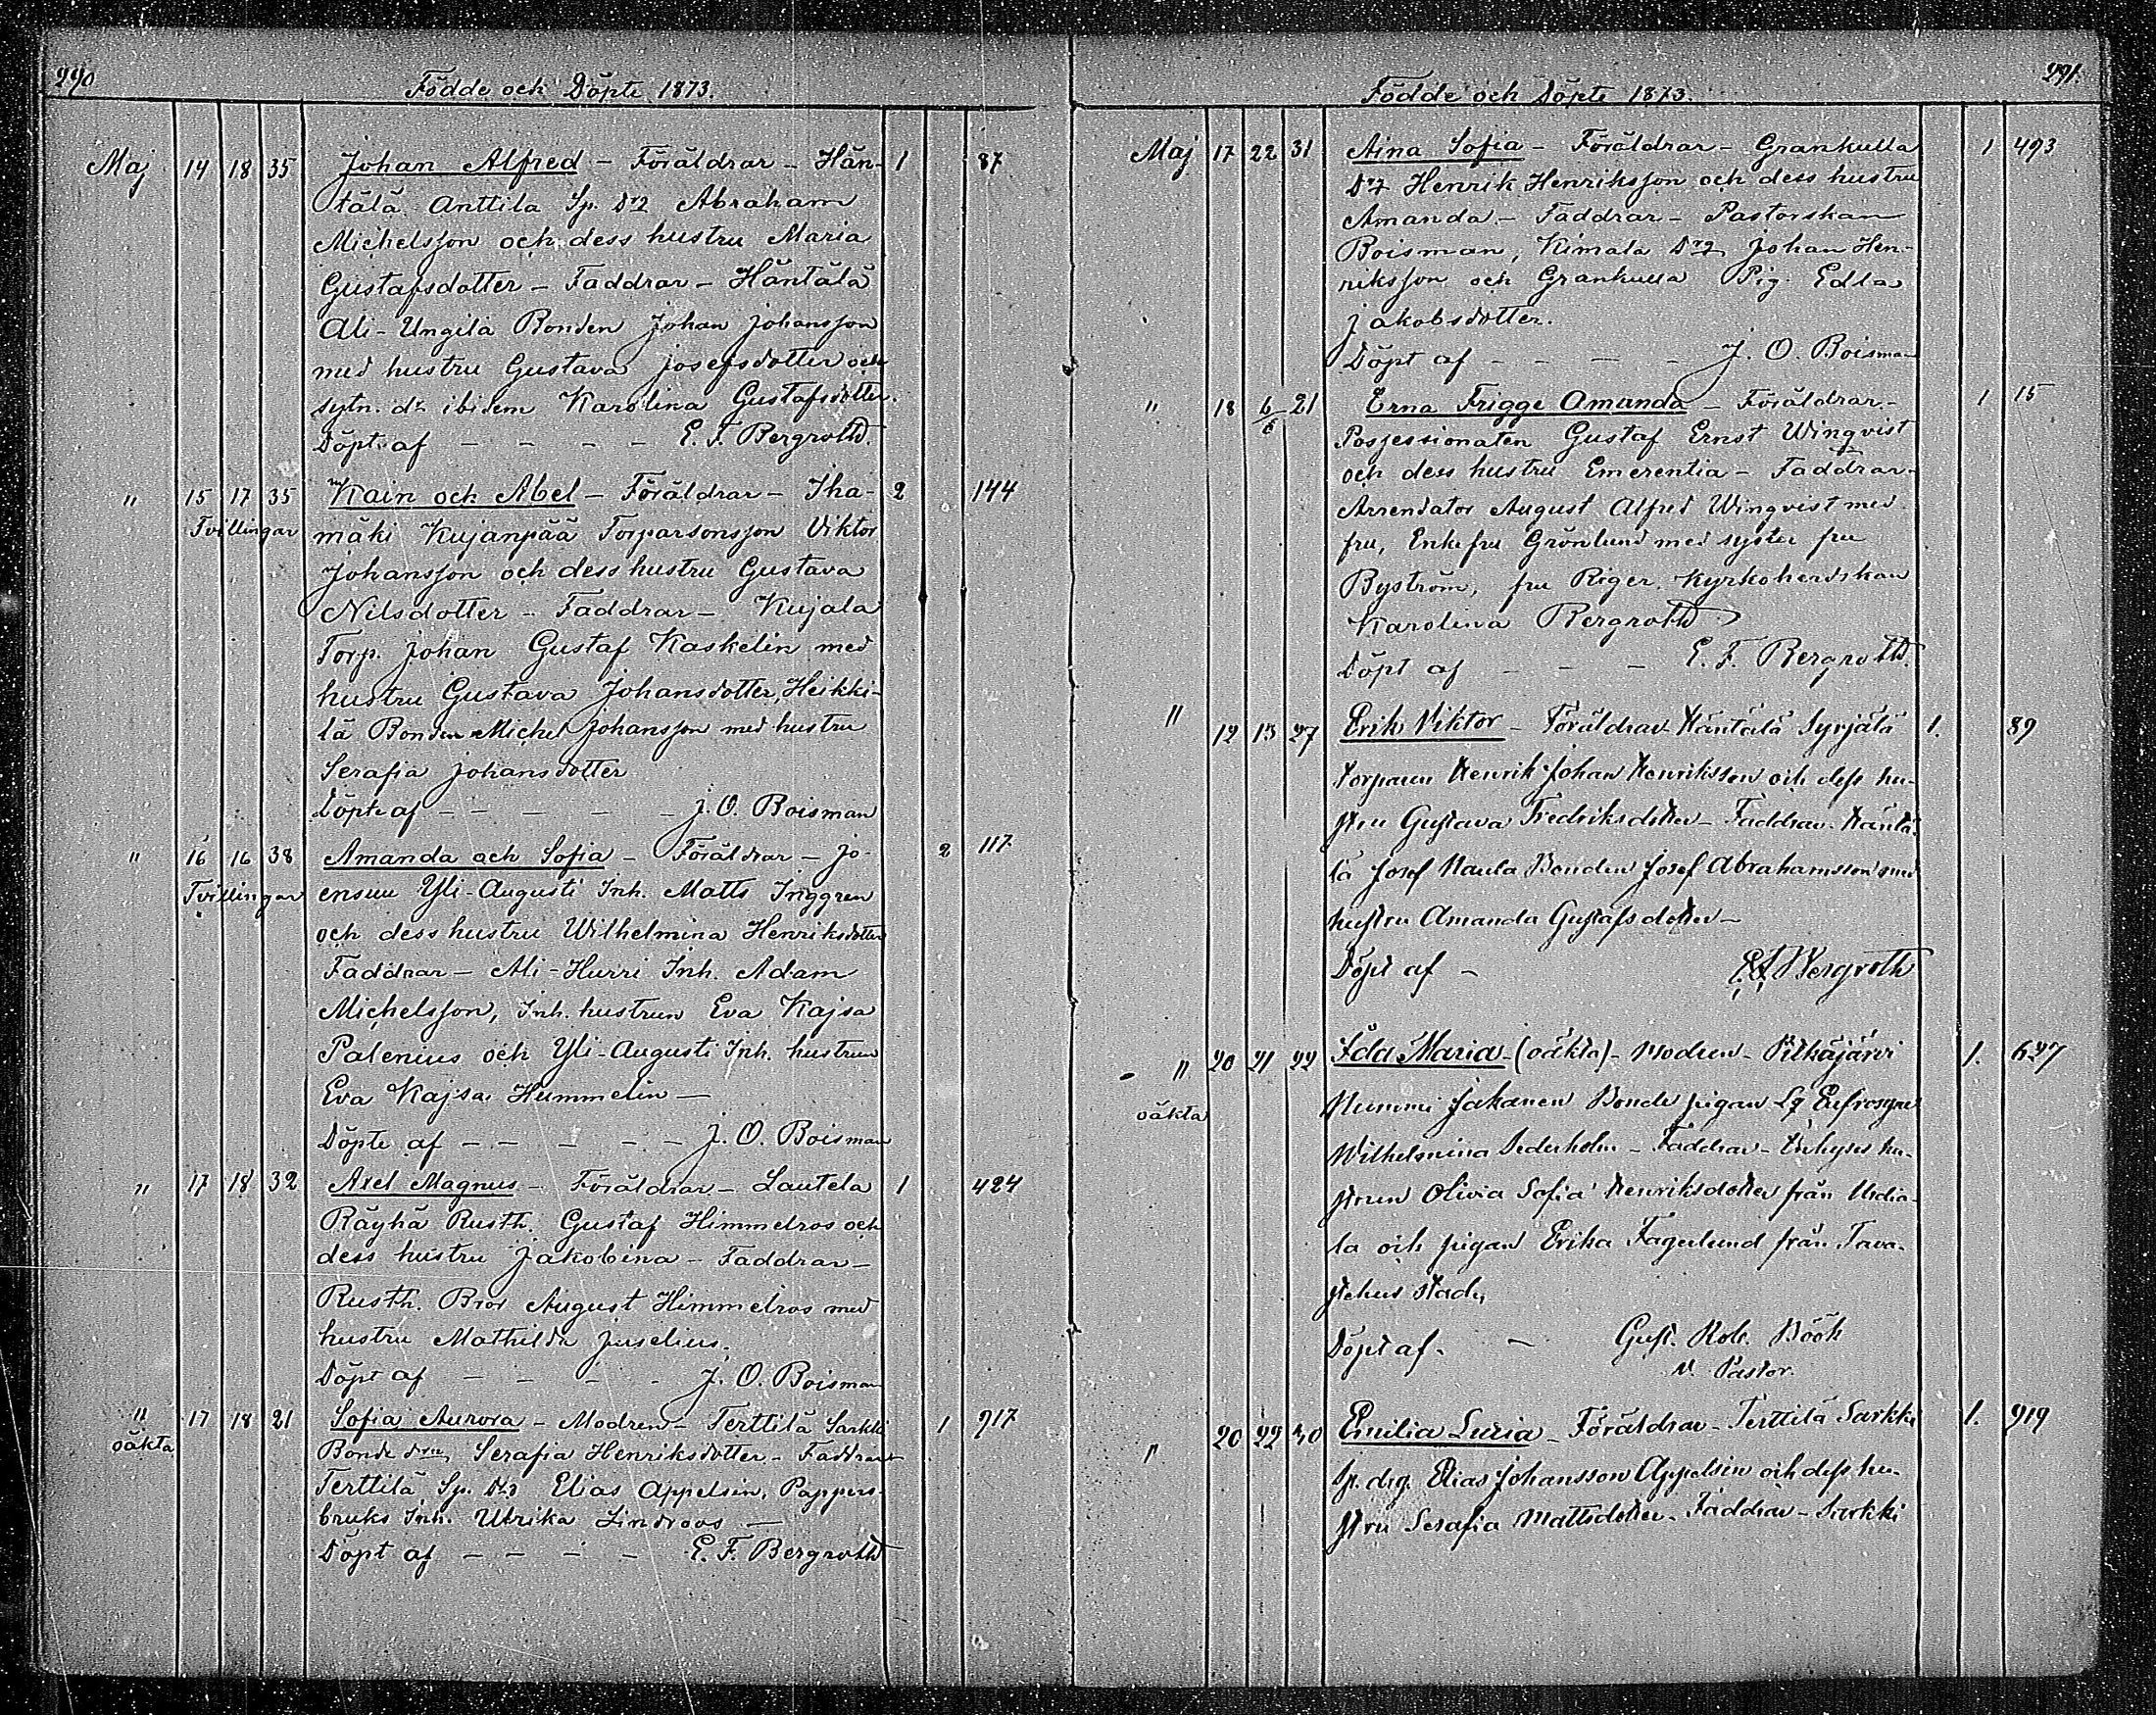 290
Födde och Döpte 1873.
Maj 14 18 35 Johan Alfred - Föräldrar - Hän- 1 87
tälä Anttila Sp. Drg Abraham
Michelsson och dess hustru Maria
Gustafsdotter - Faddrar - Häntälä
Ali-Ungila Bonden Johan Johansson
med hustru Gustava Josefsdotter och
sytn. dr ibidem Karolina Gustafsdotter.
Döpt af - - - - E. F. Bergroth.
" 15 17 35 Kain och Abel - Föräldrar - Iha- 2 144
Tvillingar mäki Kujanpää Torparsonsson Viktor
Johansson och dess hustru Gustava
Nilsdotter - Faddrar - Kujala
Torp. Johan Gustaf Kaskelin med
hustru Gustava Johansdotter, Heikki-
lä Bonden Michel Johansson med hustru
Serafia Johansdotter
Döpte af - - - - - J. O. Boisman
" 16 16 38 Amanda och Sofia - Föräldrar - Jo- 2 117
Tvillingar ensuu Yli-Augusti Inh. Matts Triggren
och dess hustru Wilhelmina Henriksdotter
Faddrar - Ali-Hurri Inh. Adam
Michelsson, Inh. hustrun Eva Kajsa
Palenius och Yli-Augusti Inh. hustrun
Eva Kajsa Hummelin -
Döpte af - - - - - J. O. Boisman
" 17 18 32 Axel Magnus - Föräldrar - Lautela 1 424
Räyhä Rusth. Gustaf Himmelros och
dess hustru Jakobina - Faddrar -
Rusth. Bror August Himmelros med
hustru Mathilda Juselius.
Döpt af - - - - J. O. Boisman
" 17 18 21 Sofia Aurora - Modren - Terttilä Sarkki 1 917
oäkta Bonde drn Serafia Henriksdotter - Faddrar
Terttilä Sp. Drg Elias Appelsin, Pappers-
bruks Inh. Ulrika Lindroos -
Döpt af - - - - E. F. Bergroth
291.
Födde och Döpte 1873.
Maj 17 22 31 Aina Sofia - Föräldrar - Grankulla 1 493
Drg Henrik Henriksson och dess hustru
Amanda - Faddrar - Pastorskan
Boisman, Kimala Drg Johan Hen-
riksson och Grankulla Pig. Edla
Jakobsdotter.
Döpt af - - - - J. O. Boisman
" 18 6/6 21 Erna Frigge Amanda - Föräldrar - 1 15
Possessionaten Gustaf Ernst Wingvist
och dess hustru Emerentia - Faddrar -
Arrendator August Alfred Wingvist med
fru, Enkefru Grönlund med syster fru
Byström, fru Riger. Kyrkoherdskan
Karolina Bergroth
Döpt af - - - E. F. Bergroth.
" 12 13 27 Erik Viktor - Föräldrar Häntälä Syrjälä 1. 89
torparen Henrik Johan Henriksson och dess hu-
stru Gustava Fredriksdotter - Faddrar - Häntä-
lä Josef Naula Bonden Josef Abrahamsson med
hustru Amanda Gustafsdotter -
Döpt af - E F Bergroth
" 20 21 22 Ida Maria - (oäkta) - Modren - Pitkäjärvi 1. 627
oäkta Nummi Jakanen Bonde pigan Lg Eufrosyne
Wilhelmina Sederholm - Faddrar - Inhyses hu-
strun Olivia Sofia Henriksdotter från Urdia-
la och pigan Erika Fagerlund från Tava-
stehus stad,
Döpt af. - Gust. Rob. Böök
v. Pastor.
" 20 22 40 Emilia Luzia - Föräldrar - Terttilä Sarkki 1. 919
Sp. drg. Elias Johansson Appelsin och dess hu-
stru Serafia Mattsdotter - Faddrar - Sarkki